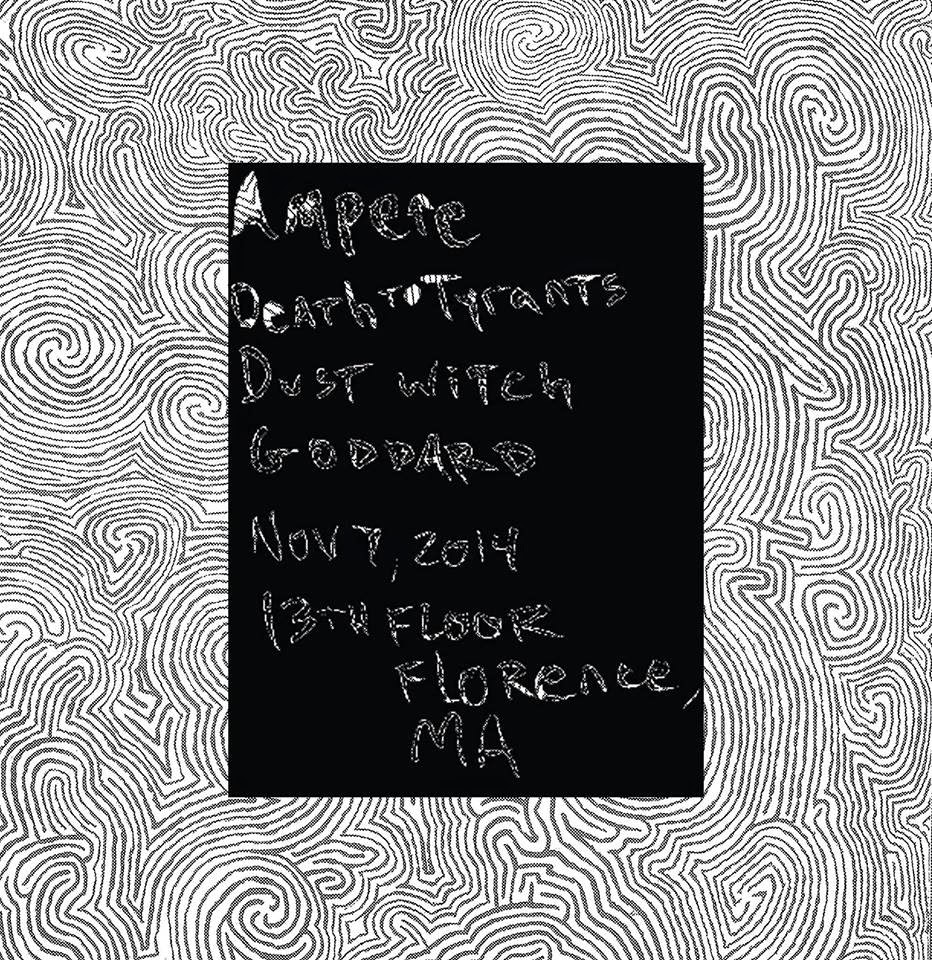 Ampere
Death to Tyrants
Dust Witch
GODDARD
Nov 7, 2014
13TH FLOOR
FLORence,
MA